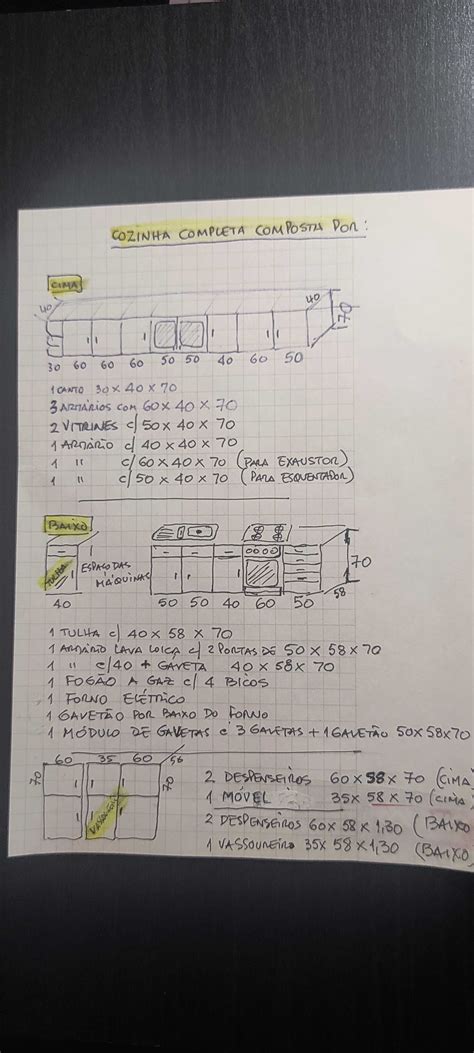 COZINHA COMPLETA COMPOSTA POR:
CIMA
40
40
70
30 60 60 60 50 50 40 60 50
1 CANTO 30 x 40 x 70
3 ARMÁRIOS COM 60 x 40 x 70
2 VITRINES C/ 50 x 40 x 70
1 ARMÁRIO C/ 40 x 40 x 70
1 " C/ 60 x 40 x 70 (PARA EXAUSTOR)
1 " C/ 50 x 40 x 70 (PARA ESQUENTADOR)
BAIXO
TULHA
ESPAÇO DAS
MÁQUINAS
70
58
40 50 50 40 60 50
1 TULHA C/ 40 x 58 x 70
1 ARMÁRIO LAVA LOIÇA C/ 2 PORTAS DE 50 x 58 x 70
1 " C/40 + GAVETA 40 x 58 x 70
1 FOGÃO A GAZ C/ 4 BICOS
1 FORNO ELÉTTRICO
1 GAVETÃO POR BAIXO DO FORNO
1 MÓDULO DE GAVETAS C 3 GAVETAS + 1 GAVETÃO 50x58x70
60 35 60 56
70
70
2 DESPENSEIROS 60 x 58 x 70 (CIMA)
1 MÓVEL 35 x 58 x 70 (CIMA
2 DESPENSEIROS 60 x 58 x 1,30 (BAIXO
1 VASSOUREIRO 35 x 58 x 1,30 (BAIXO)